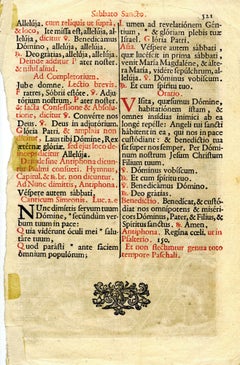 Sabbato Sancto.
321
Allelúja, cum reliquis ut suprà,
& loco, Ite missa est, Allelúja, allelúja, dicitur ℣. Benedicámus
Dómino, allelúja, allelúja.
℟. Deo grátias, allelúja, allelúja.
Deinde additur Pater noster,
& nihil aliud.
Ad Completorium.
Jube domne. Lectio brevis.
Fratres, Sóbrii estóte. ℣. Adjutórium nostrum. Pater noster.
& facta Confessione & Absolutione, dicitur ℣. Convérte nos
Deus. ℣. Deus in adjutórium
Glória Patri, &
Laus tibi Dómine, Rex
ætérnæ glóriæ. sed in
dicitur Allelúja.
Deinde absque Antiphona dicuntur Psalmi consueti. Hymnus,
Capitul. & ℟. br. non dicuntur.
Ad Nunc dimittis, Antiphona.
Véspere autem sábbati,
Canticum Simeonis. Luc. 2.
NUnc dimíttis servum tuum
Dómine, * secúndum verbum tuum in pace:
Quia vidérunt óculi mei * salutáre tuum,
Quod parásti * ante fáciem
ómnium populórum;
Lumen ad revelatiónem Géntium, * & glóriam plebis tuæ
Israel. Glória Patri.
Aña. Véspere autem sábbati,
quæ lucéscit in prima sábbati,
venit María Magdaléne, & áltera María, vidére sepúlchrum,
allelúja. ℣. Dóminus vobíscum.
℟. Et cum spíritu tuo.
Oratio.
VIsita, quǽsumus Dómine,
habitatiónem istam, &
omnes insídias inimíci ab ea
longè repélle: Angeli tui sancti
hábitent in ea, qui nos in pace
custódiant: & benedíctio tua sit
super nos semper. Per Dóminum nostrum Jesum Christum
Fílium tuum.
℣. Dóminus vobíscum.
℟. Et cum spíritu tuo.
℣. Benedicámus Dómino.
℟. Deo grátias.
Benedictio. Benedícat, & custódiat nos omnípotens & miséricors Dóminus, Pater, & Fílius, &
Spíritus sanctus. ℟. Amen.
Antiphona. Regína cœli, ut in
Psalterio. 150.
Et non flectuntur genua toto
tempore Paschali.